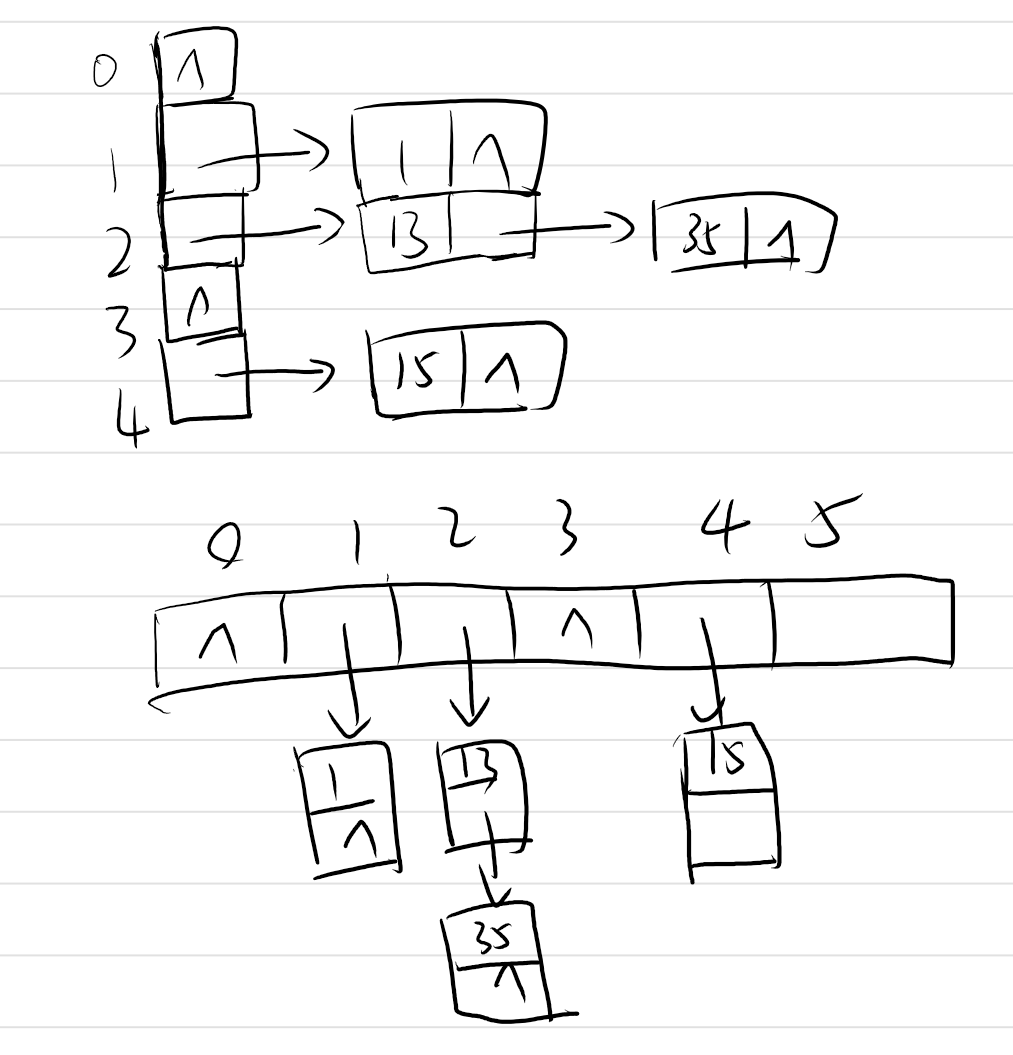 0 ∧
1 1 ∧
2 13 35 ∧
3 ∧
4 15 ∧
0 1 2 3 4 5
∧ ∧
1 13 15
∧
35
∧